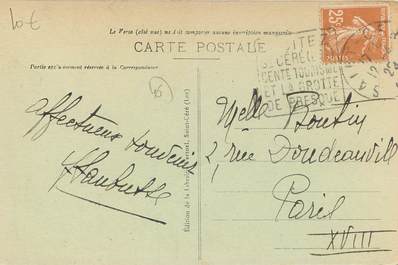 10€
Le Verso (côté vue) ne doit comporter aucune inscription manuscrite
CARTE POSTALE
Partie exclusivement réservée à la Correspondance
25c
POSTES
ST CÉRÉ
CENTE TOURISME
ET LA GROTTE
DE PRESQUE
Affectueux souvenir
Melle Boutin
2, rue Doudeauville
Paris
XVIII
Edition de la Librairie Vertuel, Saint-Céré (Lot)